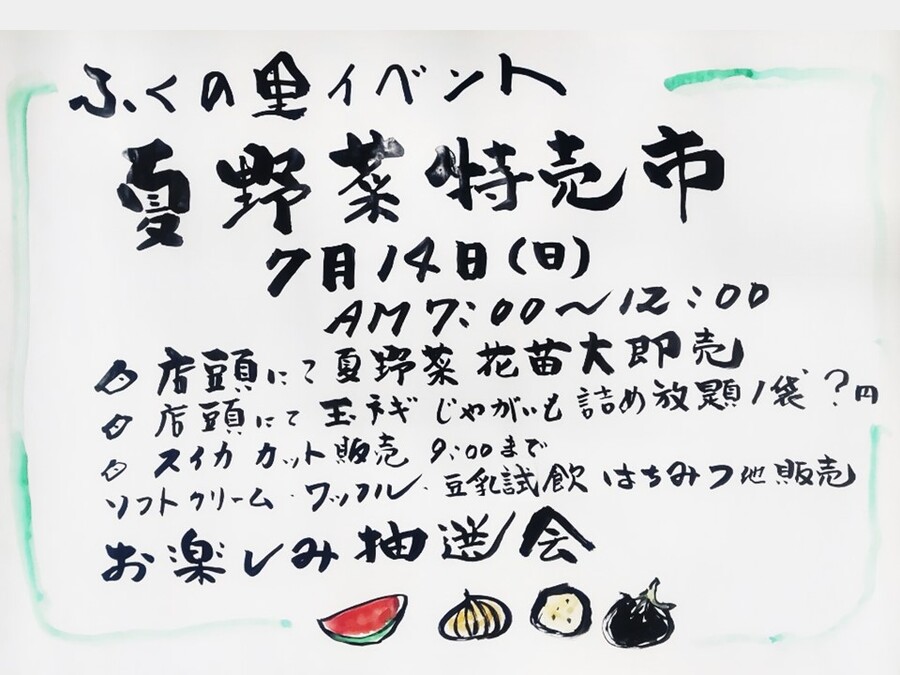 ふくの里イベント
夏野菜特売市
7月14日(日)
AM7:00〜12:00
店頭にて夏野菜 花苗大即売
店頭にて玉ネギ じゃがいも 詰め放題1袋?円
スイカ カット販売 9:00まで
ソフトクリーム・ワッフル・豆乳試飲 はちみつ他販売
お楽しみ抽選会